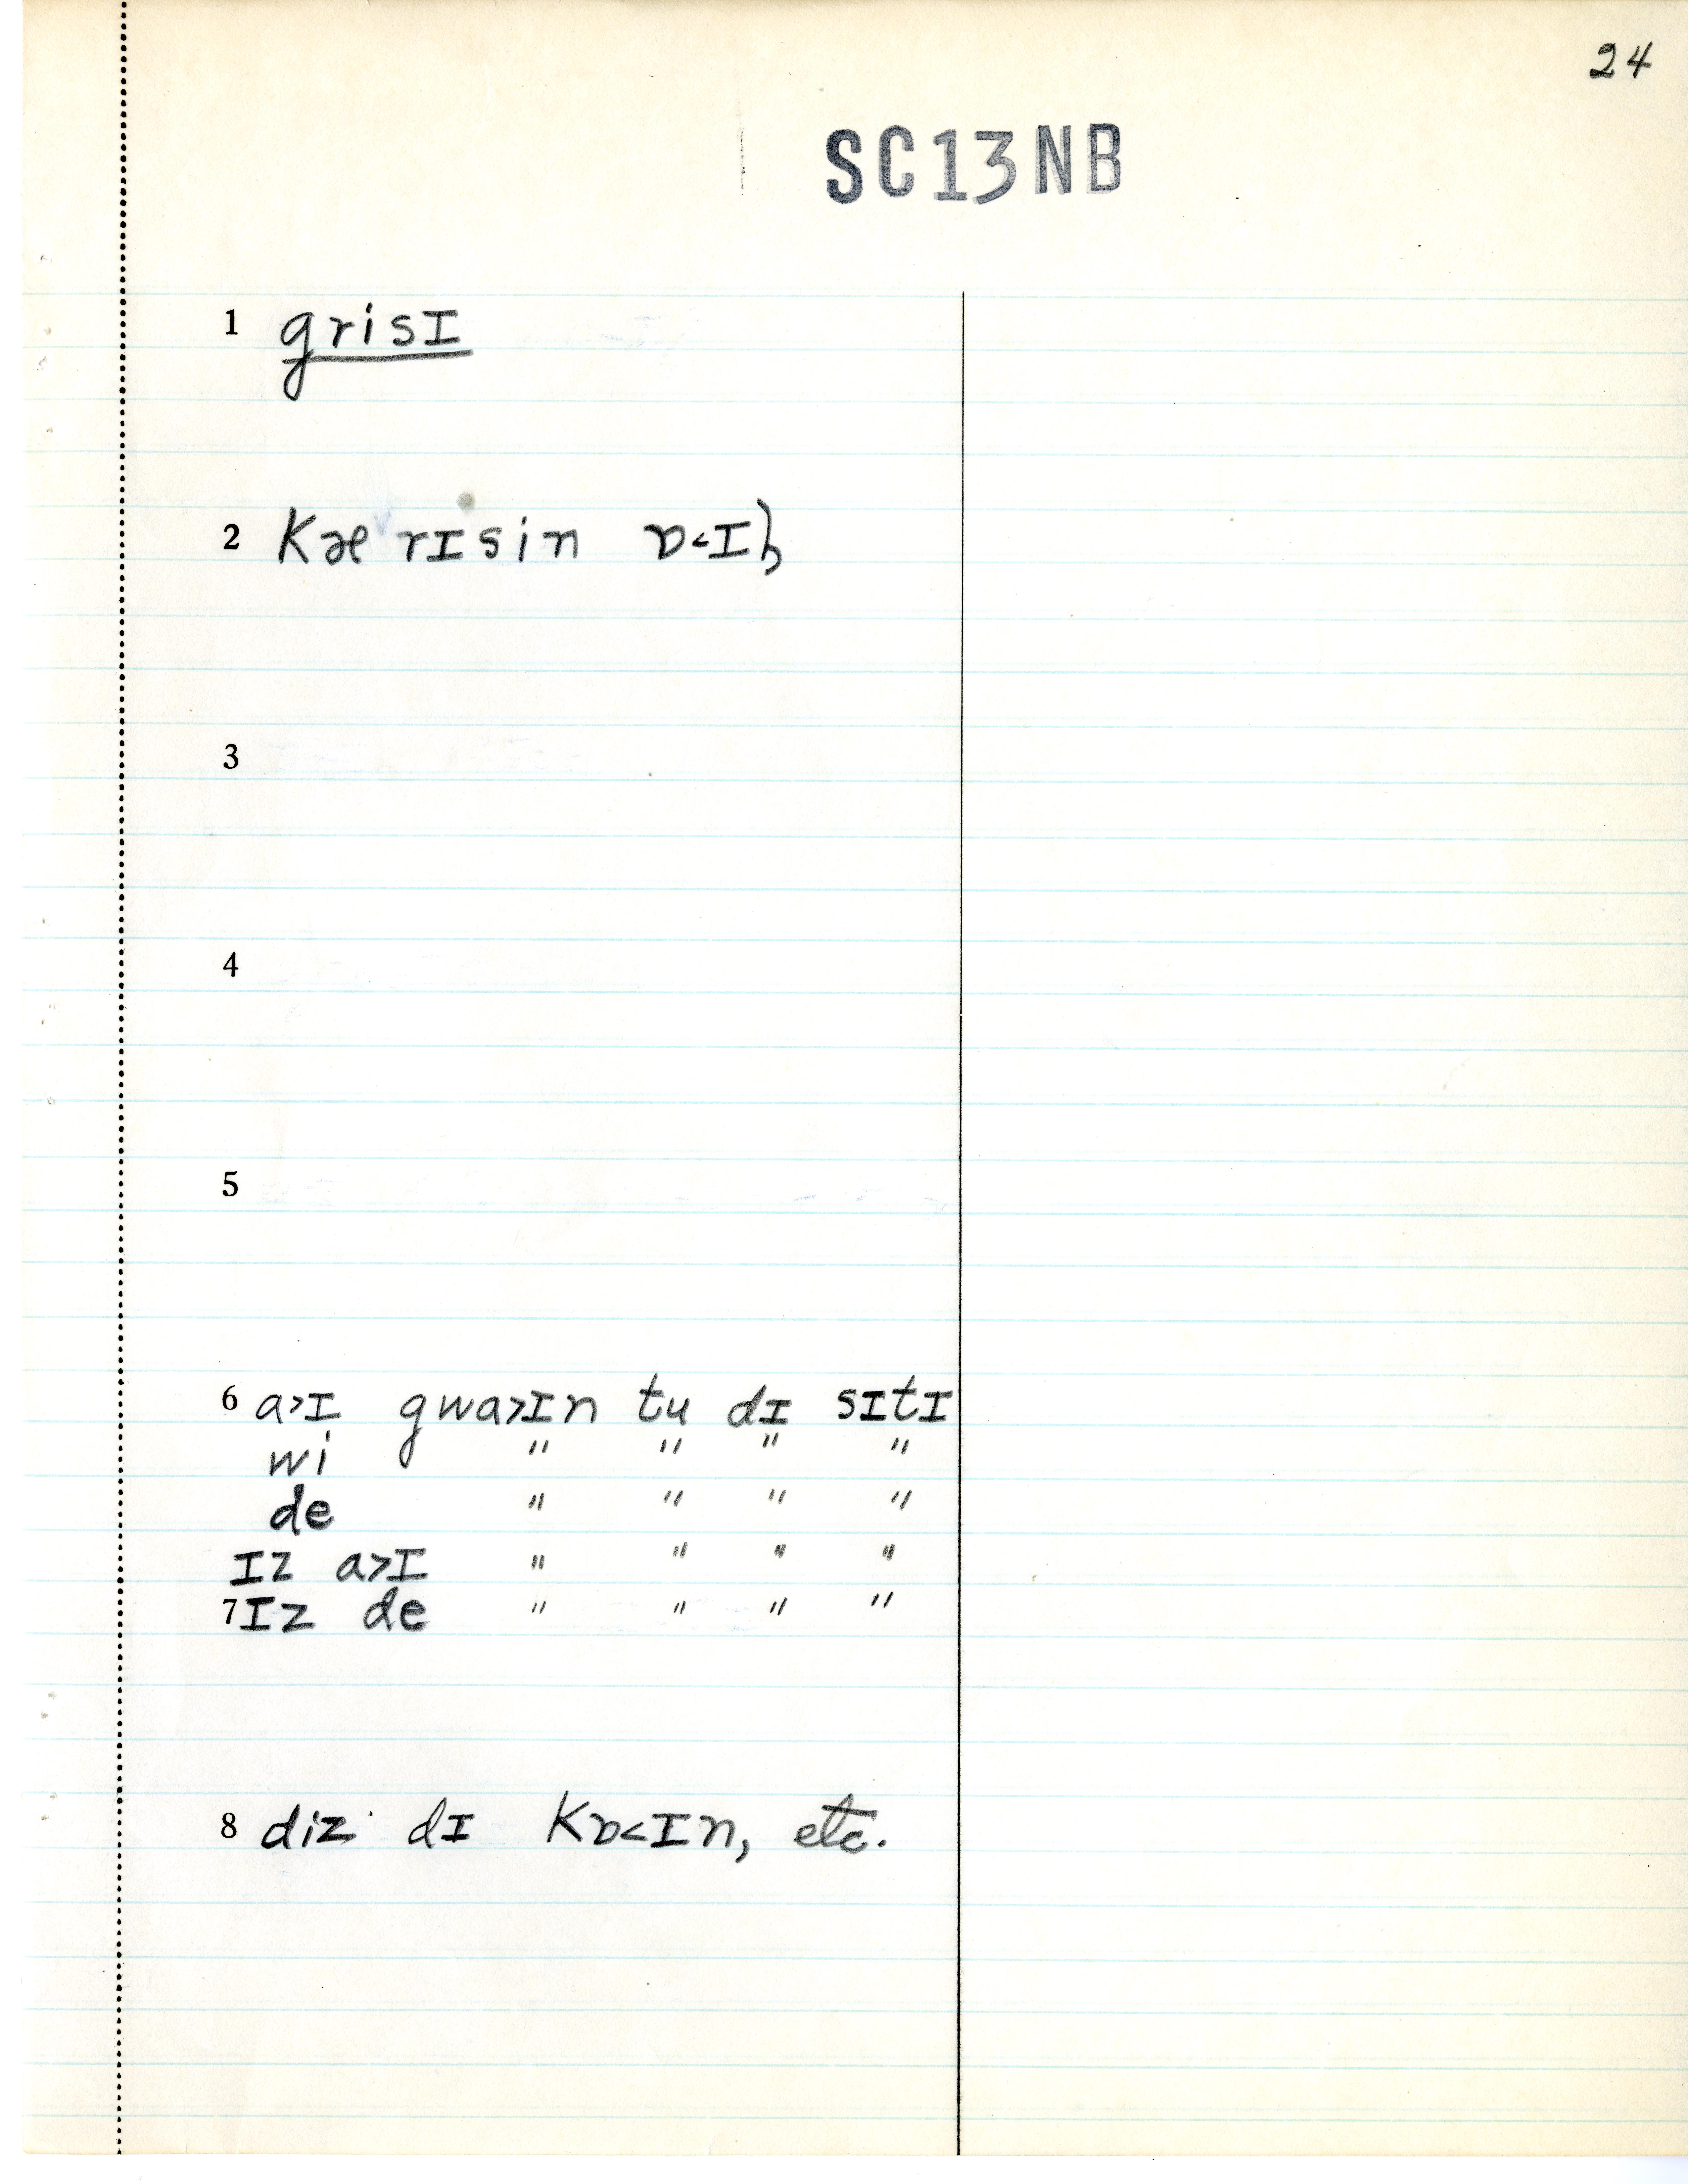 24
SC13NB
1 grisɪ
2 Kærɪsin ɒ˂ɪɫ
3
4
5
6 a˃ɪ gwa˃ɪn tu dɪ sɪtɪ
wi " " " "
de " " " "
ɪz a˃ɪ " " " "
7 ɪz de " " " "
8 diz dɪ Kɒ˂ɪn, etc.